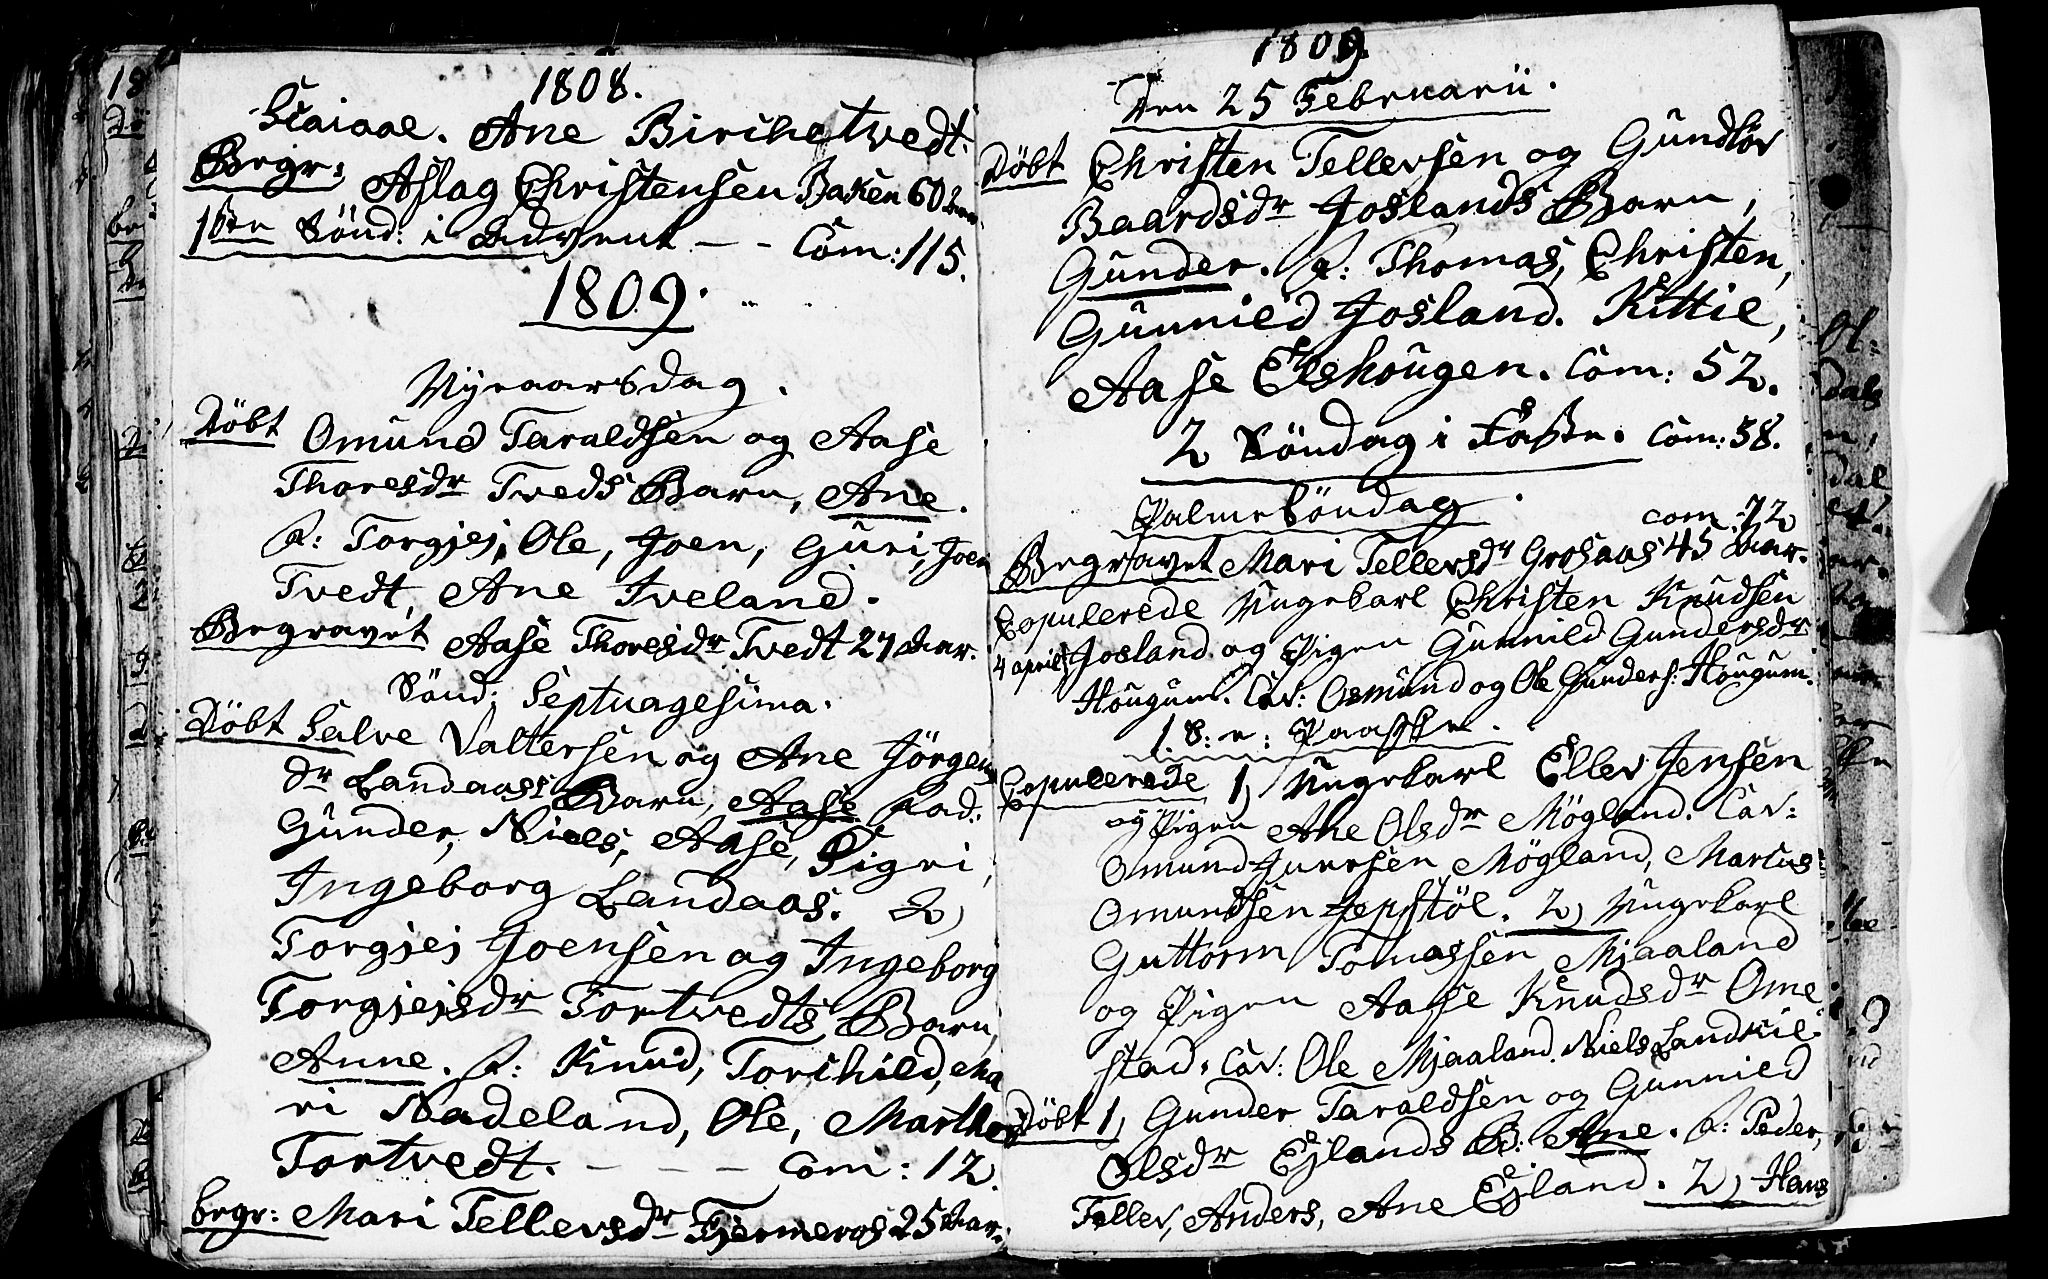 1808.
Ane Birchetvedt.
Begr: Aslag Christensen Baken 60 Aar.
1ste Sönd: i Advent - - Com: 115.
1809.
Nyeaarsdag.
Döbt Omund Taraldsen og Aase
Thoresdr Tveds Barn, Ane.
F: Torgjej, Ole, Joen, Guri, Joen
Tvedt, Ane Iveland.
Begravet Aase Thoresdr Tvedt 27 Aar.
Sönd: Septuagesima.
Döbt Salve Valtersen og Ane Jörgens
dr Landaas's Barn, Aase Fad:
Gunder, Niels, Aase, Sigri,
Ingeborg Landaas. 2)
Torgjej Joensen og Ingeborg
Torgjejsdr Tortvedts Barn,
Anne. F: Knud, Torchild, Ma
ri Nadeland, Ole, Marthe
Tortvedt. - - - Com: 12.
begr: Mari Tellevsdr Fjermeros 25 Aar.
1809.
Den 25 Februarii.
Döbt Christen Tellevsen og Gundlov
Baardsdr Joslands Barn,
Gunder. F: Thomas, Christen,
Gunnild Josland. Kittil,
Aase Elshougen. Com: 52.
2 Söndag i Faste. Com: 58.
PalmeSöndag.
com 72
Begravet Mari Tellevsdr Grosaas 45 Aar.
Copulerede Ungekarl Christen Knudsen
4 april Josland og Pigen Gunnild Gundersdr
Hougum. Cav: Osmund og Ole Gunders: Hougum.
1. S. e: Paaske.
Copulerede 1) Ungekarl Ellev Jensen
og Pigen Ane Olsdr Mögland. Cav:
Omund Iversen Mögland, Marcus
Omundsen Jepstöl. 2) Ungekarl
Guttorm Tomassen Mjaaland
og Pigen Aase Knudsdr Ome
stad. Cav: Ole Mjaaland. Niels Landkil
Döbt 1) Gunder Taraldsen og Gunnild
Olsdr Ejlands B: Ane. F: Peder,
Tellev, Anders, Ane Ejland. 2) Hans